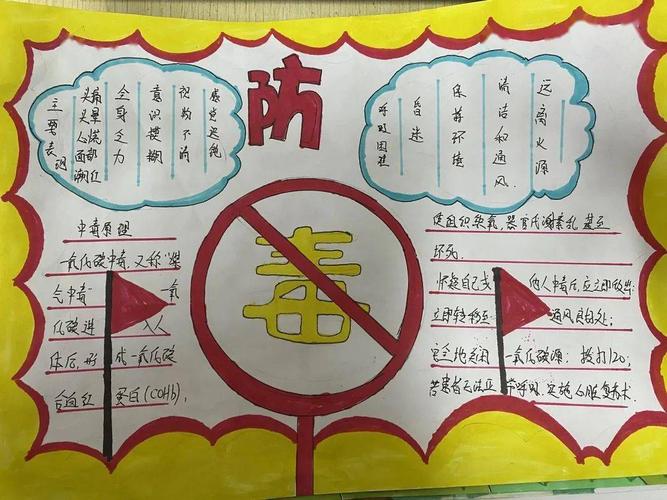 防
毒
主要表现
头痛头晕心慌面部潮红
全身乏力
意识模糊
视物不清
感觉迟钝
呼吸困难
昏迷
保持环境
清洁和通风.
远离火源
中毒原理
一氧化碳中毒,又称“煤
气中毒” 一氧
化碳进 入人
体后,形 成一氧化碳
合血红 蛋白(COHb),
使组织缺氧,器官代谢紊乱甚至
坏死.
怀疑自己或 他人中毒后,应立即救出;
立即转移至 通风良的处;
安全地关闭 一氧化碳源; 拨打120;
若患者无法正 常呼吸,实施心肺复苏术.